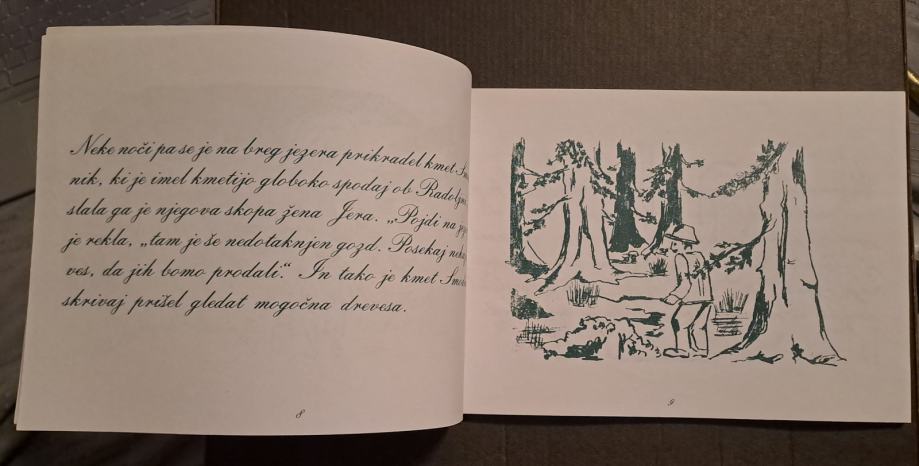 Neke noči pa se je na breg jezera prikradel kmet
nik, ki je imel kmetijo globoko spodaj ob
slala ga je njegova skopa žena Jera. „Pojdi na
je rekla, „tam je še nedotaknjen gozd. Posekaj
ves, da jih bomo prodali.“ In tako je kmet
skrivaj prišel gledat mogočna drevesa.
8
9